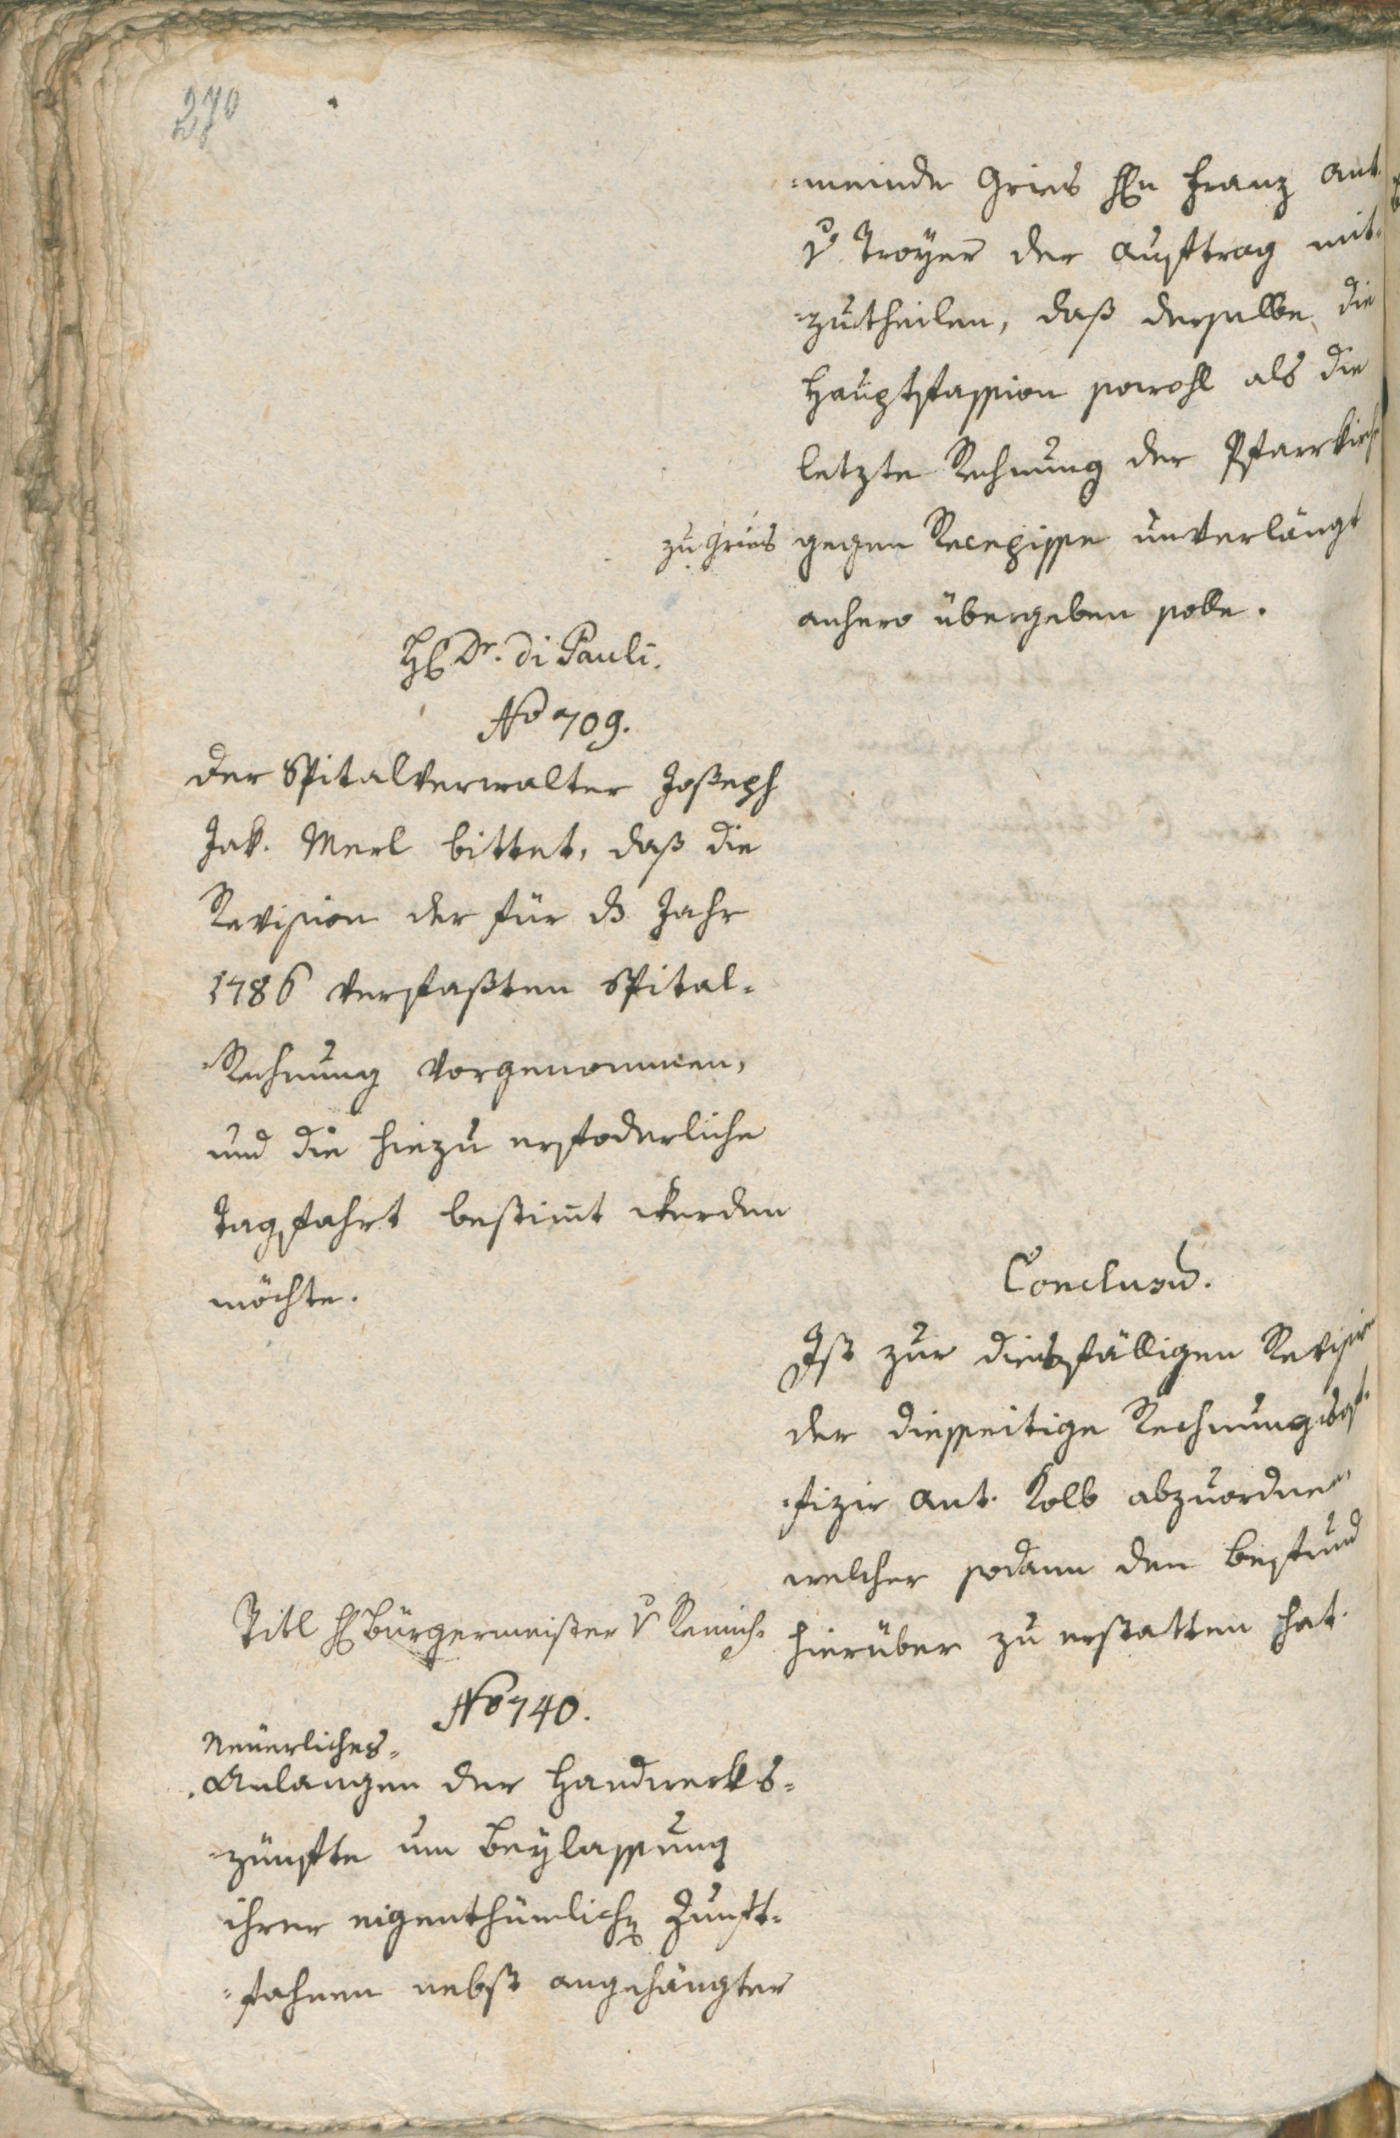 270
-meinde Gries Hn Franz Ant.
v Troyer der Auftrag mit-
-zutheilen, daß derselbe die
Hauptfassion sowohl als die
letzte Rechnung der Pfarrkirch
zu Gries gegen Recepisse unverlängt
anhero übergeben solle.
H Dr. di Pauli.
No 709.
Der Spitalverwalter Joseph
Jak. Merl bittet, daß die
Revision der für dß Jahr
1786 verfaßten Spital-
-Rechnung vorgenommen,
und die hiezu erfoderliche
Tagfahrt bestimt werden
möchte.
Conclusum.
Ist zur diesfälligen Revision
der diesseitige Rechnungsof-
-fizir Ant. Kolb abzuordnen,
welcher sodann den Befund
hierüber zu erstatten hat.
Titl H Bürgermeister v
No 740.
Neuerliches
Anlangen der Handwerks-
-zünfte um Beylassung
ihrer eigenthümlichen Zunft-
-fahnen nebst angehängter